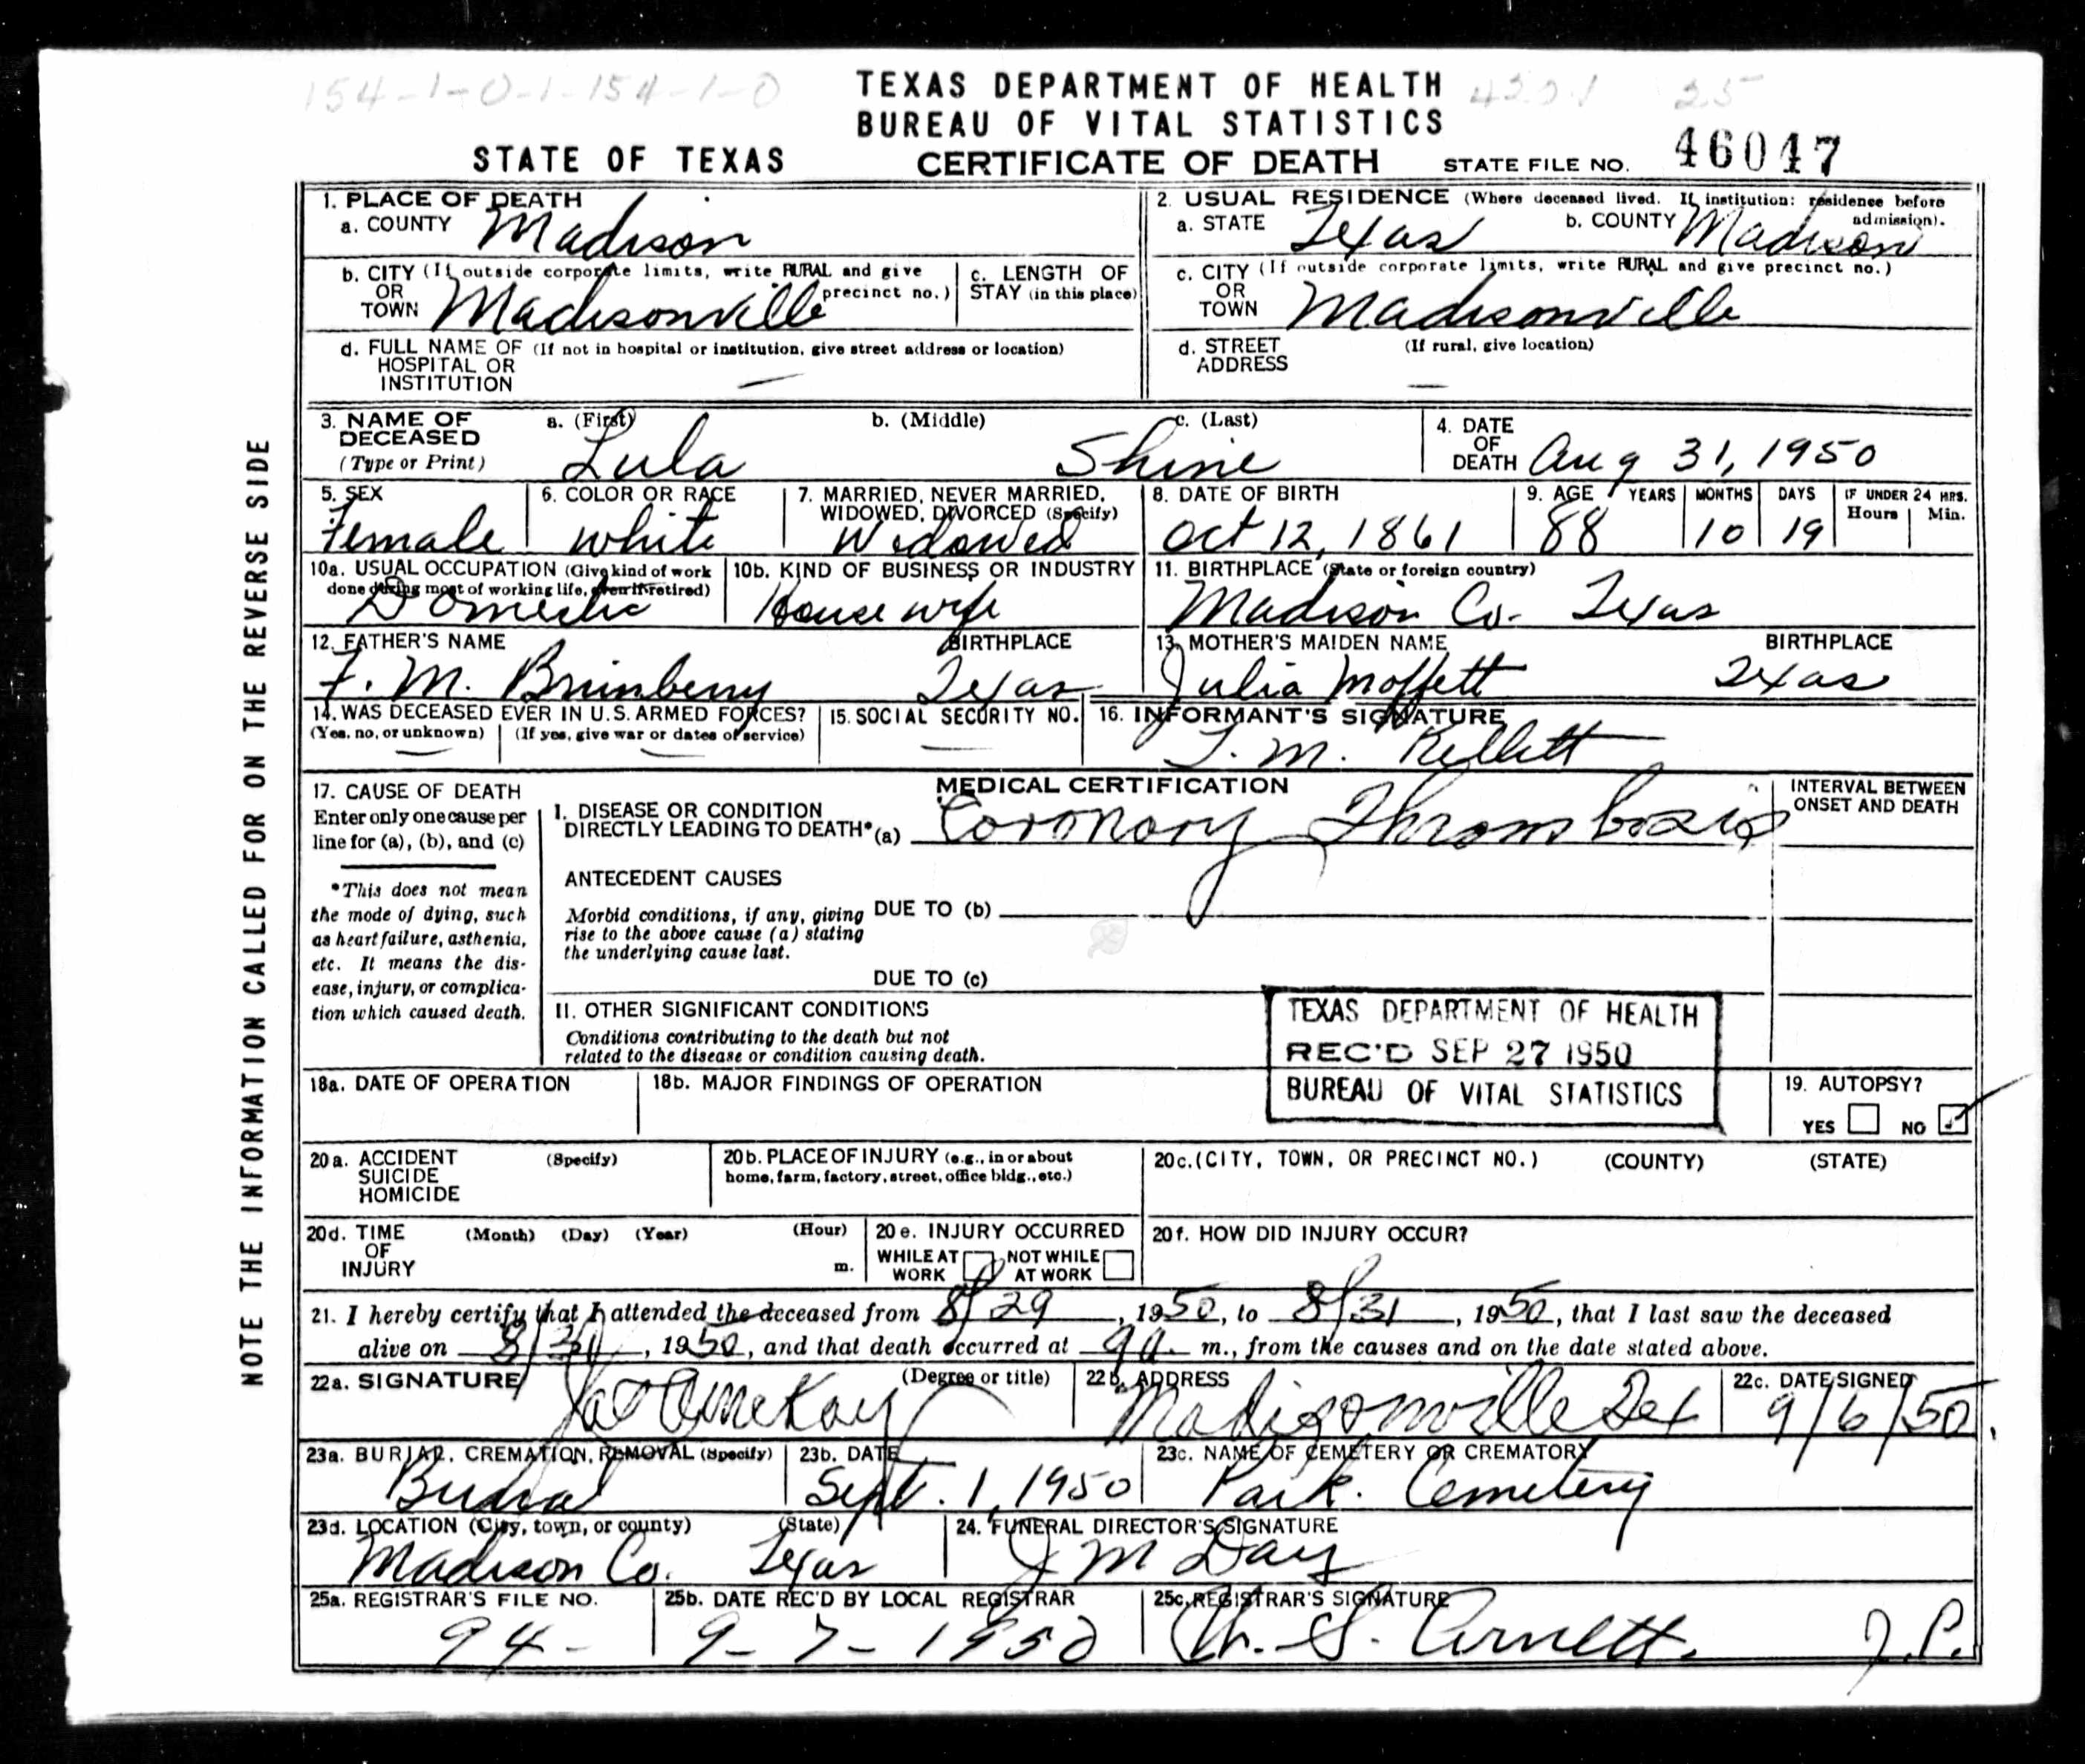 154-1-0-1-154-1-0
TEXAS DEPARTMENT OF HEALTH
BUREAU OF VITAL STATISTICS
STATE OF TEXAS CERTIFICATE OF DEATH STATE FILE NO. 46047
NOTE THE INFORMATION CALLED FOR ON THE REVERSE SIDE
1. PLACE OF DEATH
a. COUNTY Madison
2. USUAL RESIDENCE (Where deceased lived. If institution: residence before admission).
a. STATE Texas b. COUNTY Madison
b. CITY (If outside corporate limits, write RURAL and give precinct no.)
OR
TOWN Madisonville
c. LENGTH OF
STAY (in this place)
c. CITY (If outside corporate limits, write RURAL and give precinct no.)
OR
TOWN Madisonville
d. FULL NAME OF (If not in hospital or institution, give street address or location)
HOSPITAL OR
INSTITUTION —
d. STREET (If rural, give location)
ADDRESS —
3. NAME OF a. (First) b. (Middle) c. (Last)
DECEASED
(Type or Print) Lula Shine
4. DATE
OF
DEATH Aug 31, 1950
5. SEX
Female
6. COLOR OR RACE
White
7. MARRIED, NEVER MARRIED,
WIDOWED, DIVORCED (Specify)
Widowed
8. DATE OF BIRTH
Oct 12, 1861
9. AGE YEARS MONTHS DAYS IF UNDER 24 HRS.
Hours Min.
88 10 19
10a. USUAL OCCUPATION (Give kind of work
done during most of working life, even if retired)
Domestic
10b. KIND OF BUSINESS OR INDUSTRY
House wife
11. BIRTHPLACE (State or foreign country)
Madison Co. Texas
12. FATHER'S NAME BIRTHPLACE
F. M. Brimberry Texas
13. MOTHER'S MAIDEN NAME BIRTHPLACE
Julia Moffett Texas
14. WAS DECEASED EVER IN U.S. ARMED FORCES?
(Yes, no, or unknown) (If yes, give war or dates of service)
— —
15. SOCIAL SECURITY NO.
—
16. INFORMANT'S SIGNATURE
T. M. Kellett
MEDICAL CERTIFICATION
17. CAUSE OF DEATH
Enter only one cause per
line for (a), (b), and (c)
*This does not mean
the mode of dying, such
as heart failure, asthenia,
etc. It means the dis-
ease, injury, or complica-
tion which caused death.
I. DISEASE OR CONDITION
DIRECTLY LEADING TO DEATH* (a) Coronory Thrombosis
INTERVAL BETWEEN
ONSET AND DEATH
ANTECEDENT CAUSES
Morbid conditions, if any, giving
rise to the above cause (a) stating
the underlying cause last.
DUE TO (b)
DUE TO (c)
II. OTHER SIGNIFICANT CONDITIONS
Conditions contributing to the death but not
related to the disease or condition causing death.
TEXAS DEPARTMENT OF HEALTH
REC'D SEP 27 1950
BUREAU OF VITAL STATISTICS
18a. DATE OF OPERATION
18b. MAJOR FINDINGS OF OPERATION
19. AUTOPSY?
YES NO
20a. ACCIDENT (Specify)
SUICIDE
HOMICIDE
20b. PLACE OF INJURY (e.g., in or about
home, farm, factory, street, office bldg., etc.)
20c. (CITY, TOWN, OR PRECINCT NO.) (COUNTY) (STATE)
20d. TIME (Month) (Day) (Year) (Hour)
OF
INJURY m.
20e. INJURY OCCURRED
WHILE AT NOT WHILE
WORK AT WORK
20f. HOW DID INJURY OCCUR?
21. I hereby certify that I attended the deceased from 8/29, 1950, to 8/31, 1950, that I last saw the deceased
alive on , 1950, and that death occurred at 9 a. m., from the causes and on the date stated above.
22a. SIGNATURE (Degree or title)
22b. ADDRESS
Madisonville Tex
22c. DATE SIGNED
9/6/50.
23a. BURIAL, CREMATION, REMOVAL (Specify)
Burial
23b. DATE
Sept. 1, 1950
23c. NAME OF CEMETERY OR CREMATORY
Park. Cemetery
23d. LOCATION (City, town, or county) (State)
Madison Co. Texas
24. FUNERAL DIRECTOR'S SIGNATURE
J M Day
25a. REGISTRAR'S FILE NO.
94-
25b. DATE REC'D BY LOCAL REGISTRAR
9-7-1950
25c. REGISTRAR'S SIGNATURE
W. S. Arnett. J.P.